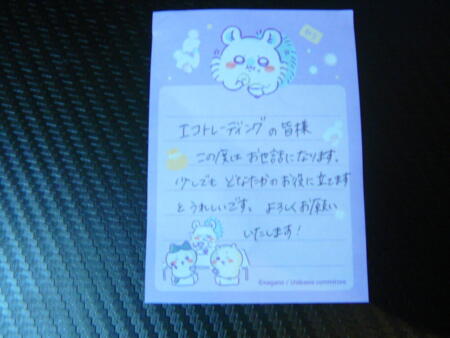 エコトレーディングの皆様
この度はお世話になります。
少しでもどなたかのお役に立てます
とうれしいです。よろしくお願い
いたします!
©nagano / chiikawa committee